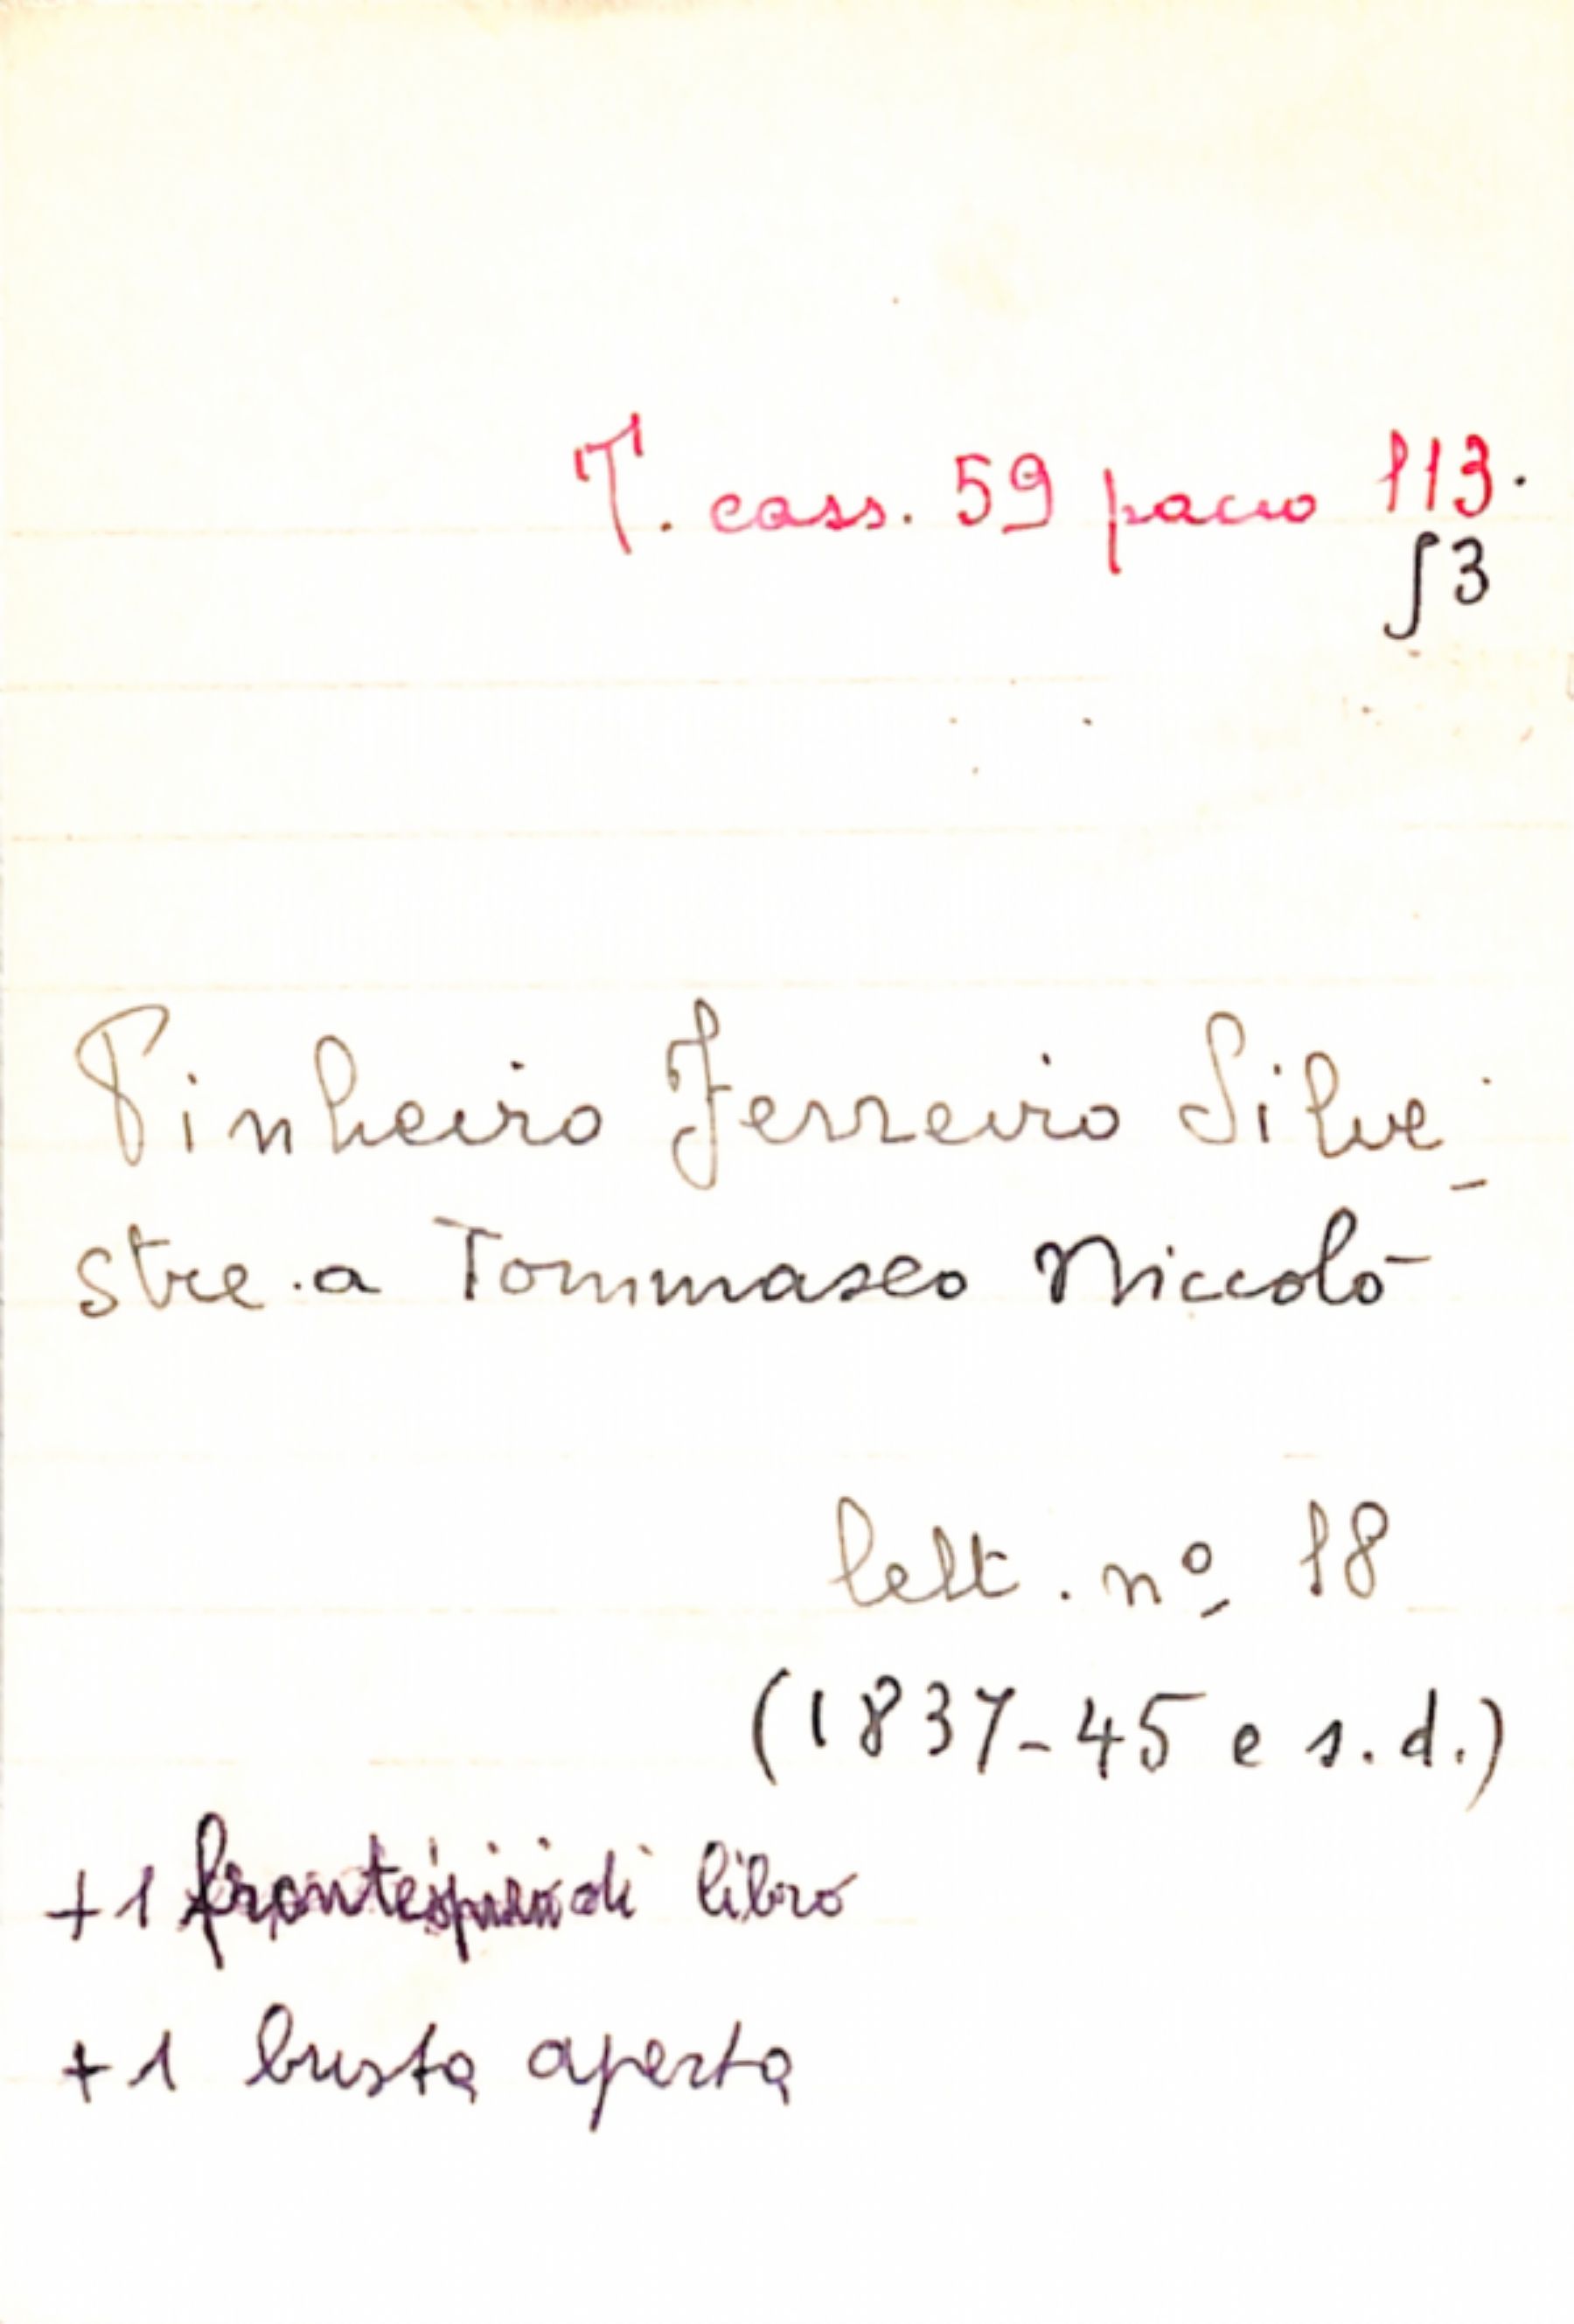 T. cass. 59 pacco 113.
∫3
Pinheiro Ferreiro Silve-
stre. a Tommaseo Niccolò
lett. nº 18
(1837-45 e s.d.)
+1 frontespizio di libro
+1 busta aperta